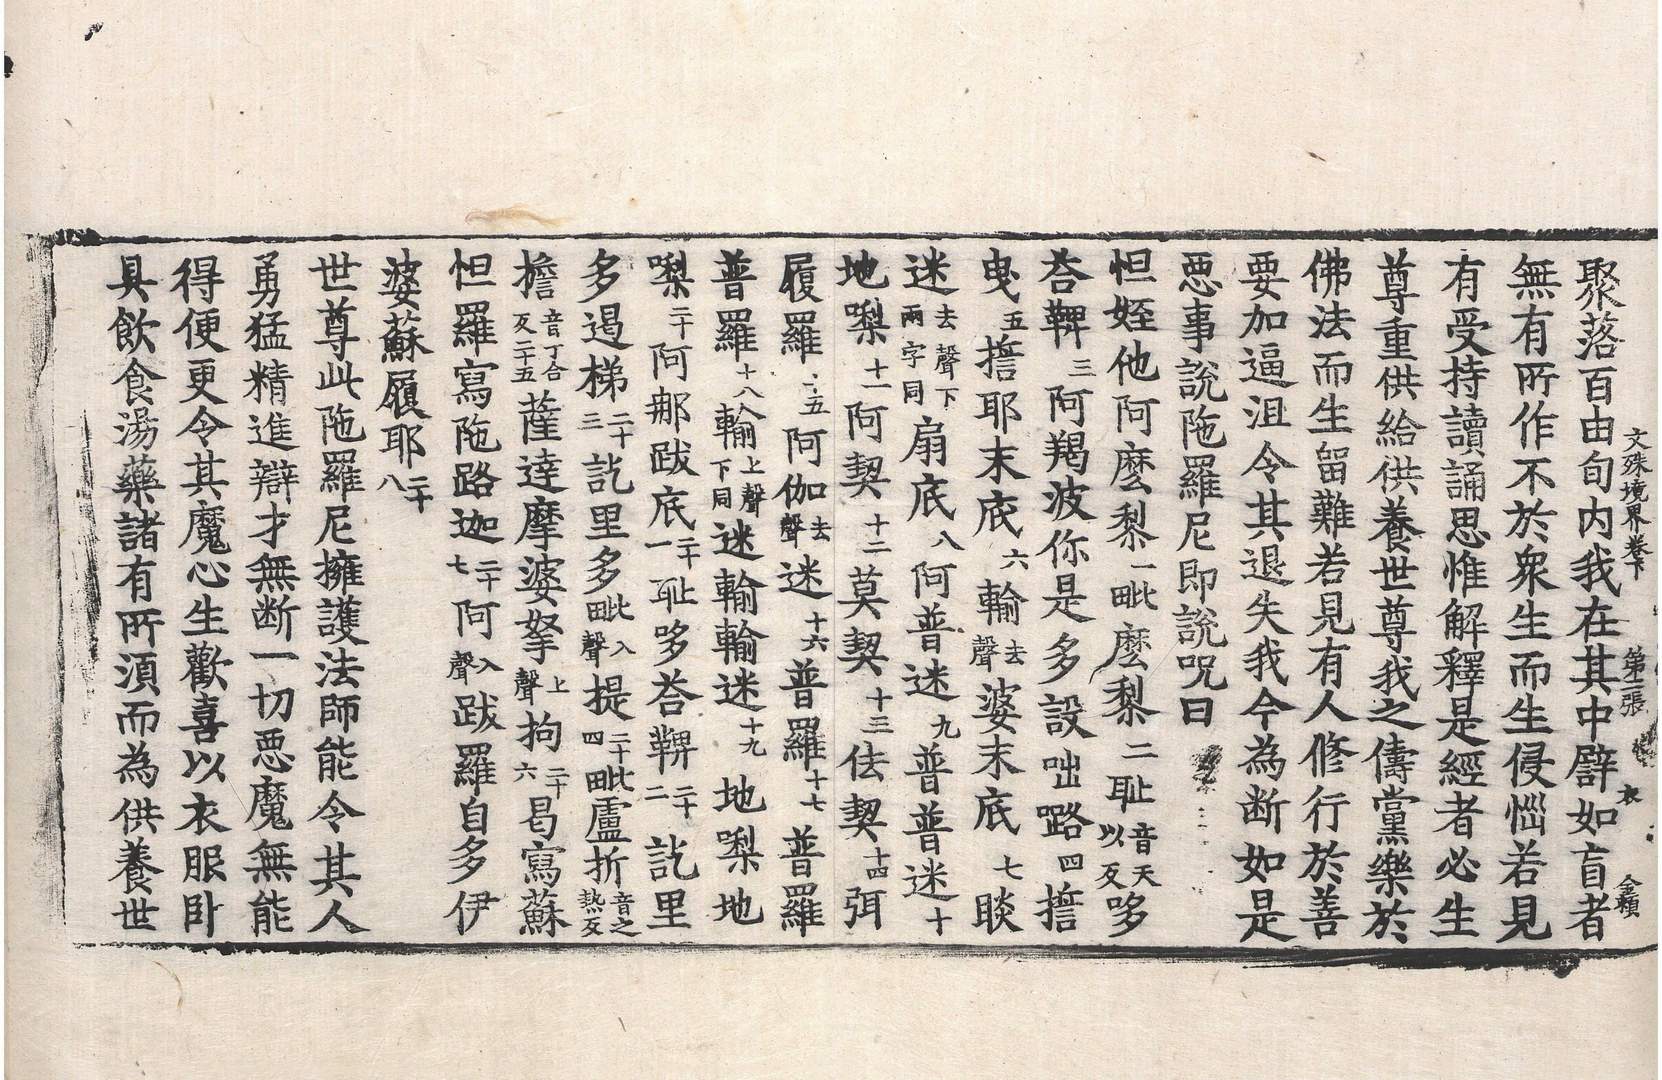 文殊境界卷下　第二張　衣　金頼
聚落百由旬内我在其中辟如盲者
無有所作不於衆生而生侵惱若見
有受持讀誦思惟解釋是經者必生
尊重供給供養世尊我之儔黨樂於
佛法而生留難若見有人修行於善
要加逼沮令其退失我今為断如是
惡事說陁羅尼即說呪曰
怛姪他阿麽黎一毗麽梨二耻音天以反哆
荅鞞三阿羯波你是多設咄路四擔
曳五擔耶末底六輸去聲婆末底七睒
迷去聲下兩字同扇底八阿普迷九普普迷十
地㗚十一阿契十二莫契十三佉契十四弭
履羅十五阿伽去聲迷十六普羅十七普羅
普羅十八輸上聲下同迷輸輸迷十九地㗚地
㗚二十阿那跋底二十一耻哆荅鞞二十二訖里
多遏梯二十三訖里多毗入聲提二十四毗盧折音之熱反
擔音丁合反二十五薩達摩婆拏上聲拘二十六曷寫蘇
怛羅寫陁路迦二十七阿入聲跋羅自多伊
婆蘇履耶二十八
世尊此陁羅尼擁護法師能令其人
勇猛精進辯才無断一切惡魔無能
得便更令其魔心生歡喜以衣服卧
具飲食湯藥諸有所湏而為供養世